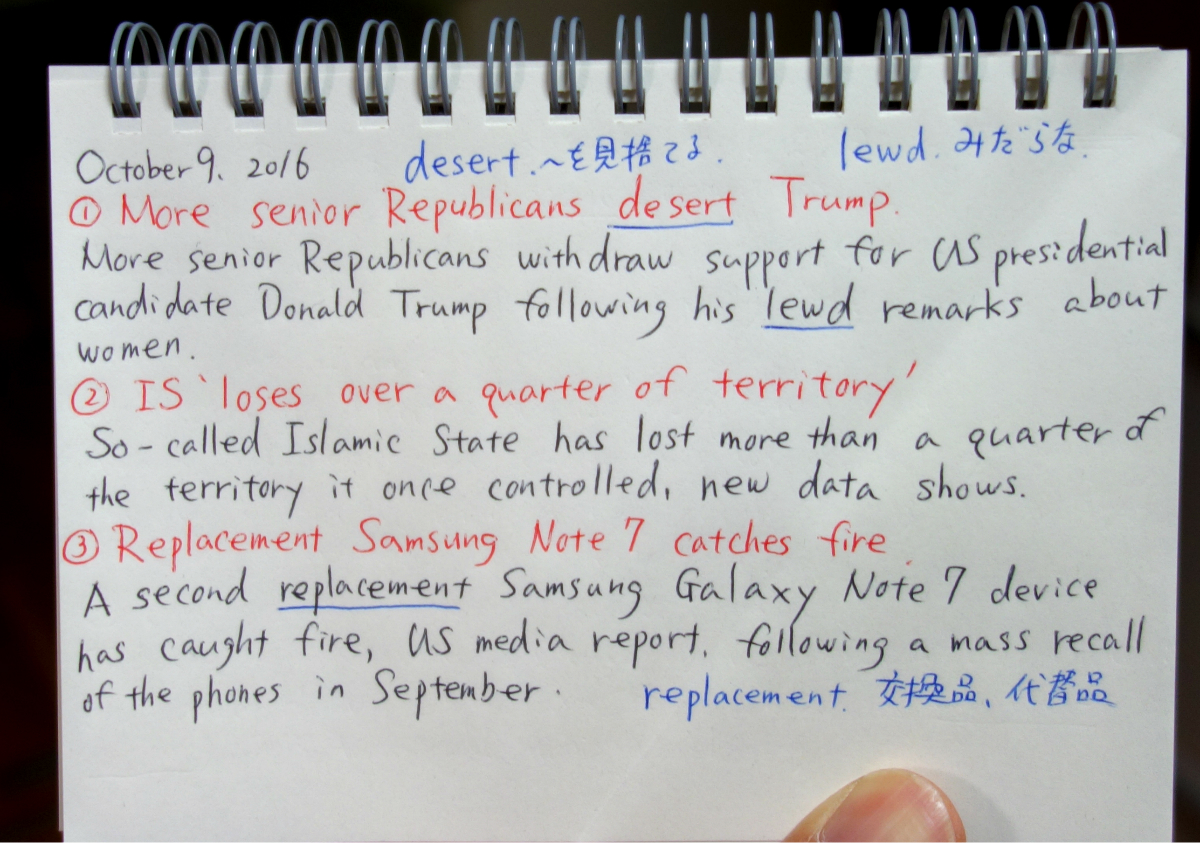 October 9, 2016 desert. ～を見捨てる. lewd. みだらな.
① More senior Republicans desert Trump.
More senior Republicans withdraw support for US presidential
candidate Donald Trump following his lewd remarks about
women.
② IS 'loses over a quarter of territory'
So-called Islamic State has lost more than a quarter of
the territory it once controlled, new data shows.
③ Replacement Samsung Note 7 catches fire
A second replacement Samsung Galaxy Note 7 device
has caught fire, US media report, following a mass recall
of the phones in September. replacement. 交換品、代替品